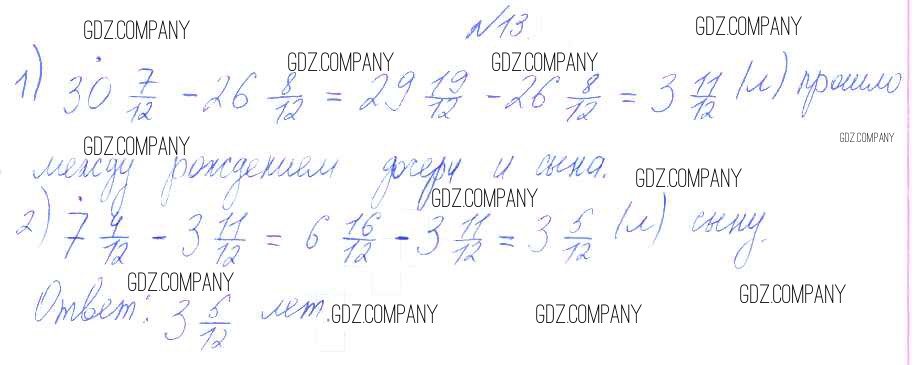 №13.
1) 30 7/12 - 26 8/12 = 29 19/12 - 26 8/12 = 3 11/12 (л) прошло
между рождением дочери и сына.
2) 7 4/12 - 3 11/12 = 6 16/12 - 3 11/12 = 3 5/12 (л) сыну.
Ответ: 3 5/12 лет.
GDZ.COMPANY
GDZ.COMPANY
GDZ.COMPANY
GDZ.COMPANY
GDZ.COMPANY
GDZ.COMPANY
GDZ.COMPANY
GDZ.COMPANY
GDZ.COMPANY
GDZ.COMPANY
GDZ.COMPANY
GDZ.COMPANY